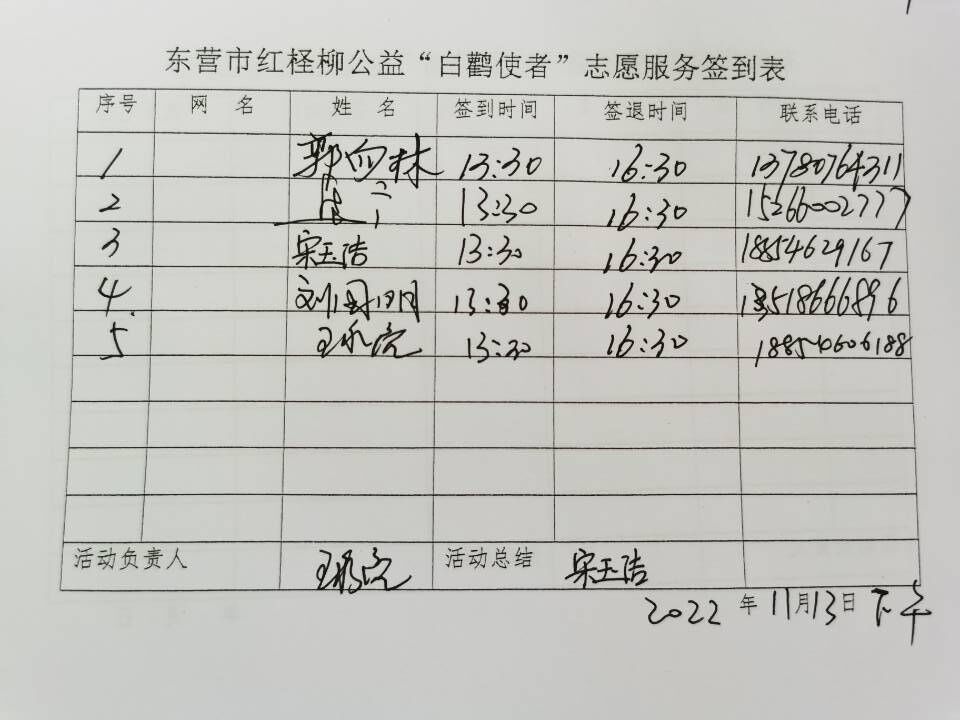 东营市红柽柳公益“白鹳使者”志愿服务签到表
序号 网 名 姓 名 签到时间 签退时间 联系电话
1 郭向林 13:30 16:30 13780764311
2 13:30 16:30 15266002777
3 宋玉浩 13:30 16:30 18854629167
4 刘国 13:30 16:30 13518666896
5 13:30 16:30 18854606188
活动负责人 活动总结 宋玉浩
2022 年 11月13日 下午